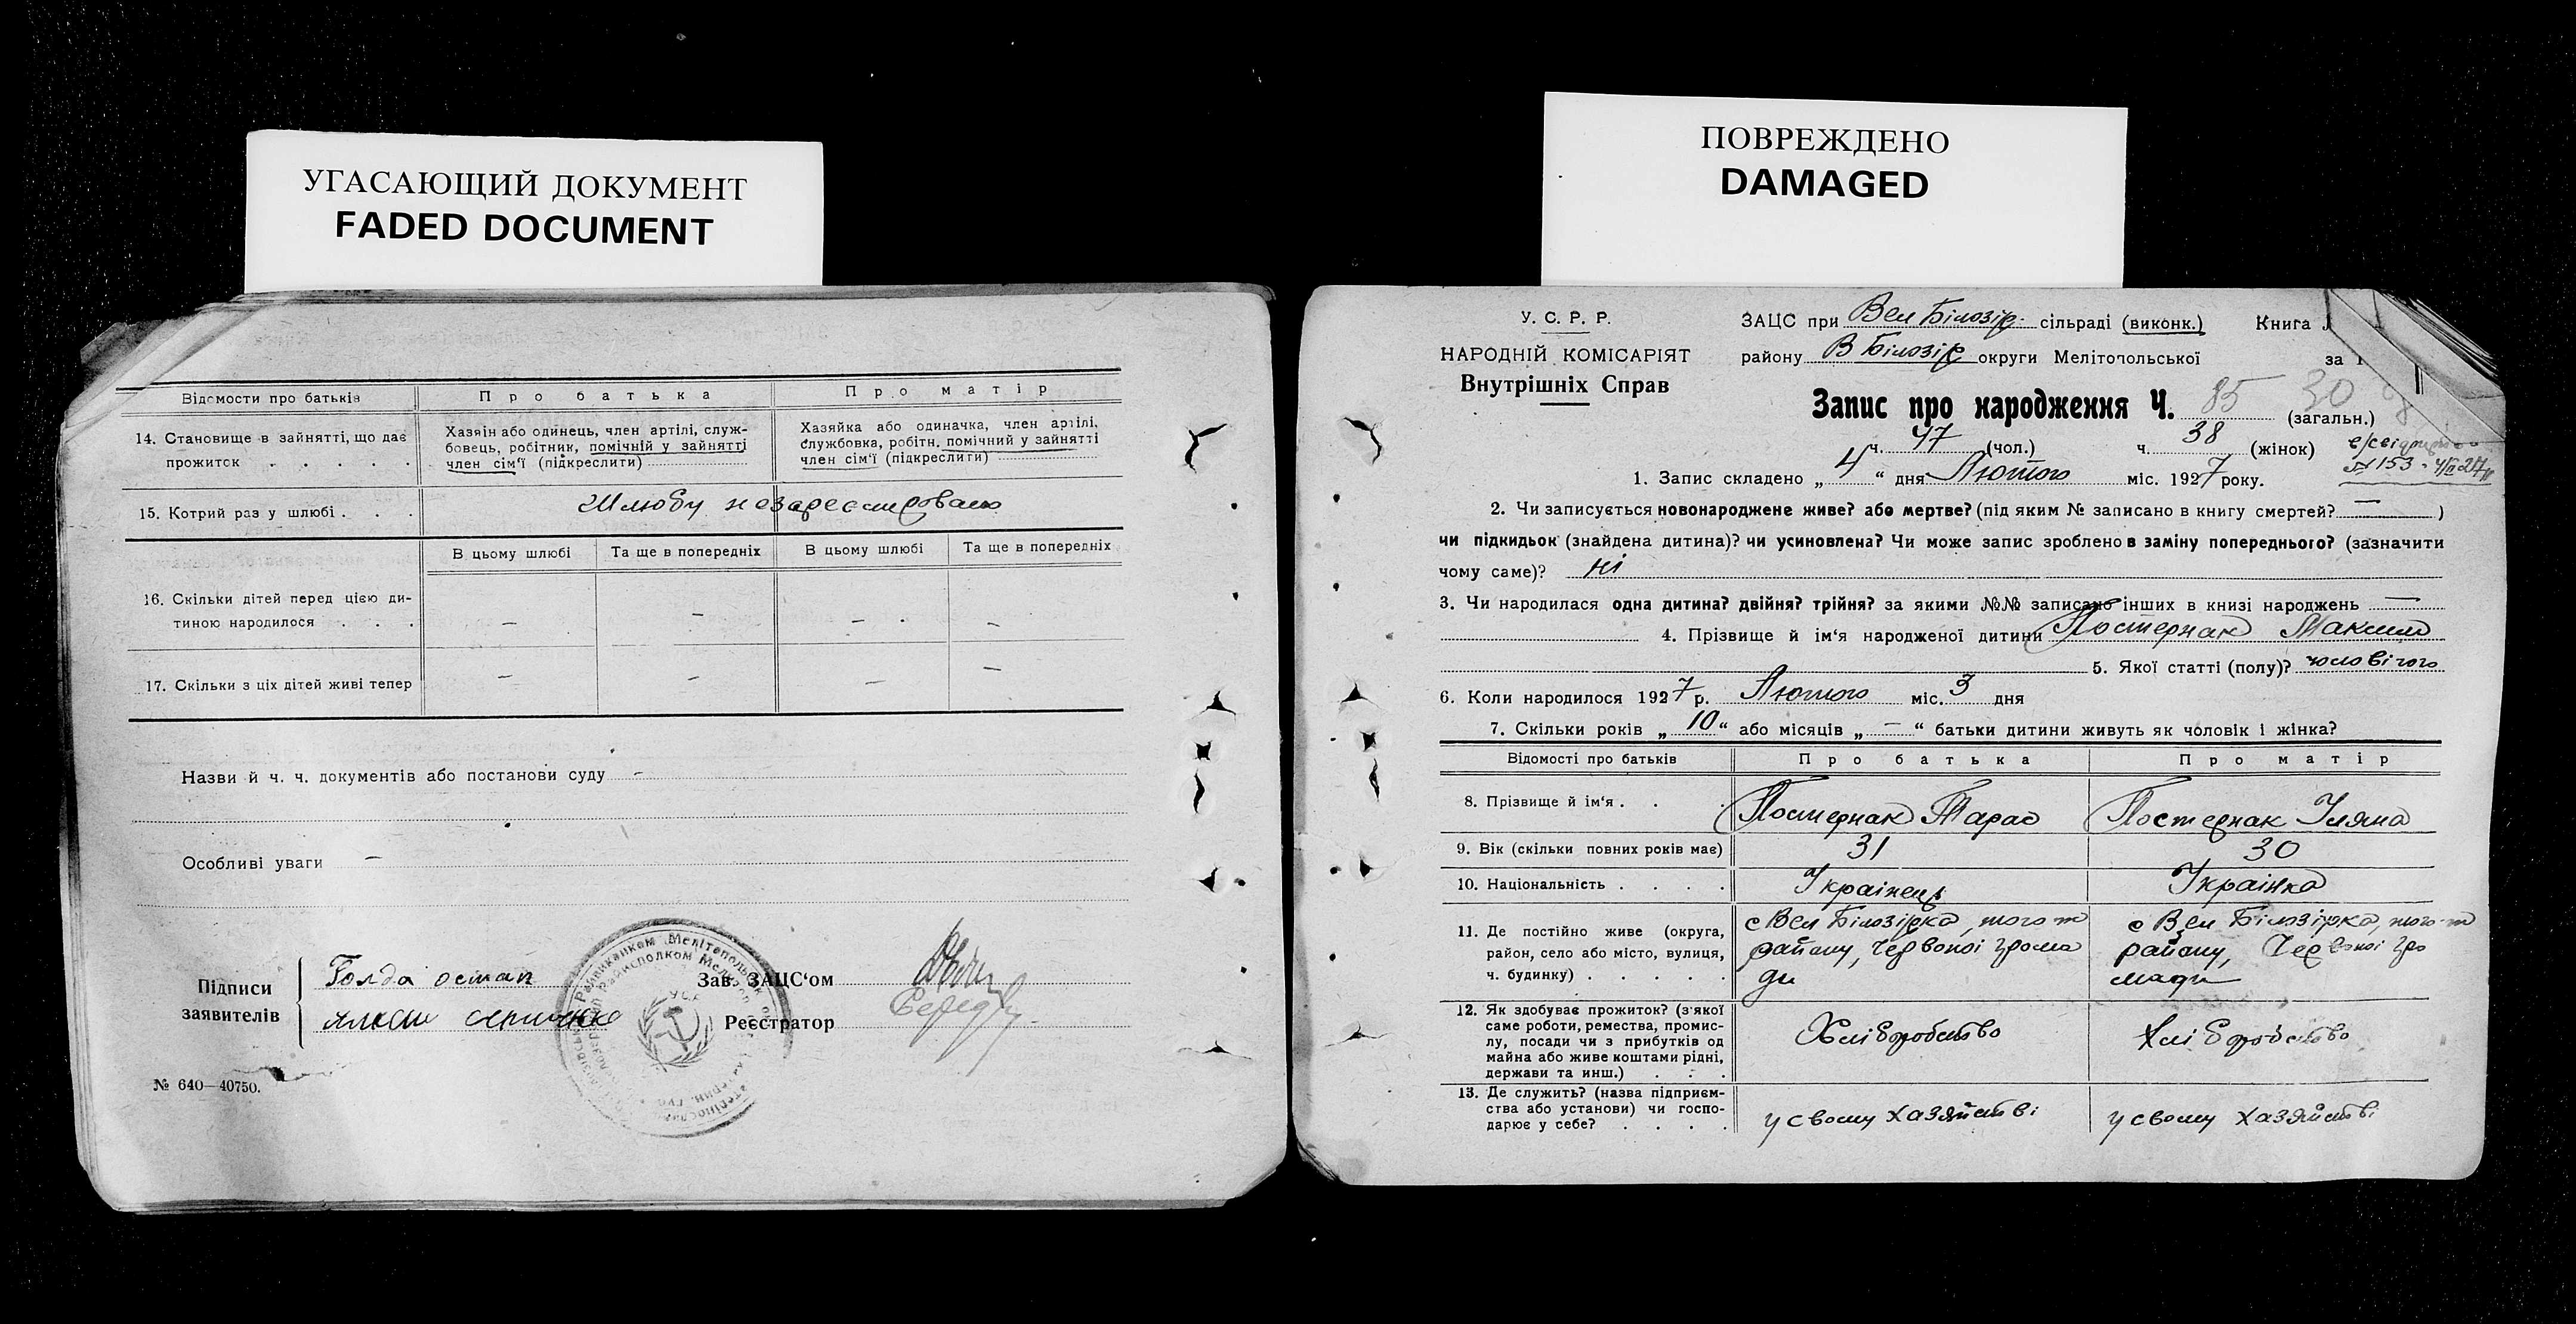 УГАСАЮЩИЙ ДОКУМЕНТ
FADED DOCUMENT
Відомости про батьків
Про батька
Про матір
14. Становище в зайнятті, що дає
прожиток . . . . .
Хазяїн або одинець, член артілі, служ-
бовець, робітник, помічній у зайнятті
член сім'ї (підкреслити)
Хазяйка або одиначка, член артілі,
службовка, робітн. помічний у зайнятті
член сім'ї (підкреслити)
15. Котрий раз у шлюбі . . .
Шлюбу незареєстровано
В цьому шлюбі
Та ще в попередніх
В цьому шлюбі
Та ще в попередніх
16. Скільки дітей перед цією ди-
тиною народилося . . .
— — — —
17. Скільки з ціх дітей живі тепер
— — — —
Назви й ч. ч. документів або постанови суду —
Особливі уваги —
Підписи
заявителів
Голда остап
Зав. ЗАЦС'ом
Реєстратор
№ 640—40750.
ПОВРЕЖДЕНО
DAMAGED
У. С. Р. Р.
НАРОДНІЙ КОМІСАРІЯТ
Внутрішніх Справ
ЗАЦС при Вел Білозір. сільраді (виконк.) Книга
району В Білозір округи Мелітопольської за 1
Запис про народження Ч. 85 30 (загальн.)
ч. 47 (чол.) ч. 38 (жінок)
№153 - 4/II 27
1. Запис складено „ 4 “ дня Лютого міс. 1927 року.
2. Чи записується новонароджене живе? або мертве? (під яким № записано в книгу смертей? — )
чи підкидьок (знайдена дитина)? чи усиновлена? Чи може запис зроблено в заміну попереднього? (зазначити
чому саме)? ні
3. Чи народилася одна дитина? двійня? трійня? за якими №№ записано інших в книзі народжень —
4. Прізвище й ім'я народженої дитини Постернак Максим
5. Якої статті (полу)? чоловічого
6. Коли народилося 1927 р. Лютого міс. 3 дня
7. Скільки років „ 10 “ або місяців „ — “ батьки дитини живуть як чоловік і жінка?
Відомості про батьків
Про батька
Про матір
8. Прізвище й ім'я . . .
Постернак Тарас
Постернак Уляна
9. Вік (скільки повних років має)
31
30
10. Національність . . . .
Українець
Українка
11. Де постійно живе (округа,
район, село або місто, вулиця,
ч. будинку) . . . . .
с Вел Білозірка, того ж
району, Червоної грома
ди
с Вел Білозірка, того ж
району, Червоної гро
мади
12. Як здобуває прожиток? (з'якої
саме роботи, ремества, промис-
лу, посади чи з прибутків од
майна або живе коштами рідні,
держави та инш.) . . .
Хліборобство
Хліборобство
13. Де служить? (назва підприєм-
ства або установи) чи госпо-
дарює у себе? . . . .
у свому хазяйстві
у свому хазяйстві